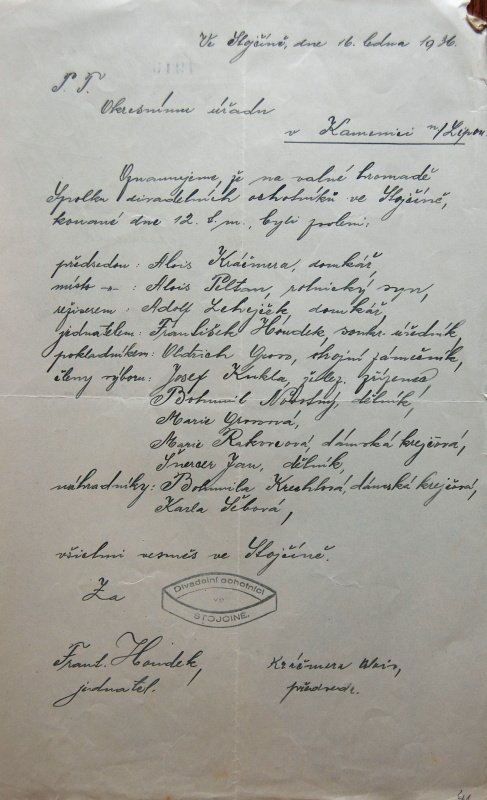 Ve Stojčíně, dne 16. ledna 1936.
P. T.
Okresnímu úřadu
v Kamenici n/Lipou.
Oznamujeme, že na valné hromadě
Spolku divadelních ochotníků ve Stojčíně,
konané dne 12. t. m., byli zvoleni:
předsedou: Alois Kráčmera, domkář,
místo -"- : Alois Peltan, rolnický syn,
režiserem: Adolf Lehejček, domkář,
jednatelem: František Houdek, soukr. úředník,
pokladníkem: Oldrich Gros, strojní zámečník,
členy výboru: Josef Kukla, želez. zřízenec
Bohumil Novotný, dělník,
Marie Grosová,
Marie Rakovcová, dámská krejčová,
Švercer Jan, dělník,
náhradníky: Bohumila Krechlová, dámská krejčová,
Karla Šebová,
všichni vesměs ve Stojčíně.
Za
Divadelní ochotníci
ve
STOJČÍNĚ.
Frant. Houdek,
jednatel.
Kráčmera Alois,
předseda.